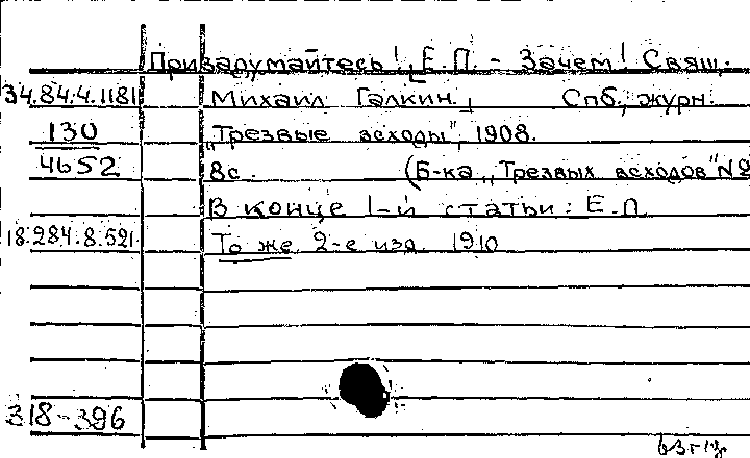 Призадумайтесь! Е.П. - Зачем! Свящ.
34.84.4.1181 Михаил Галкин. Спб., журн.
130 „Трезвые всходы", 1908.
4652 8с. (Б-ка „Трезвых всходов" №2
В конце 1-й статьи: Е.П.
18.284.8.521. То же 2-е изд. 1910
318-396